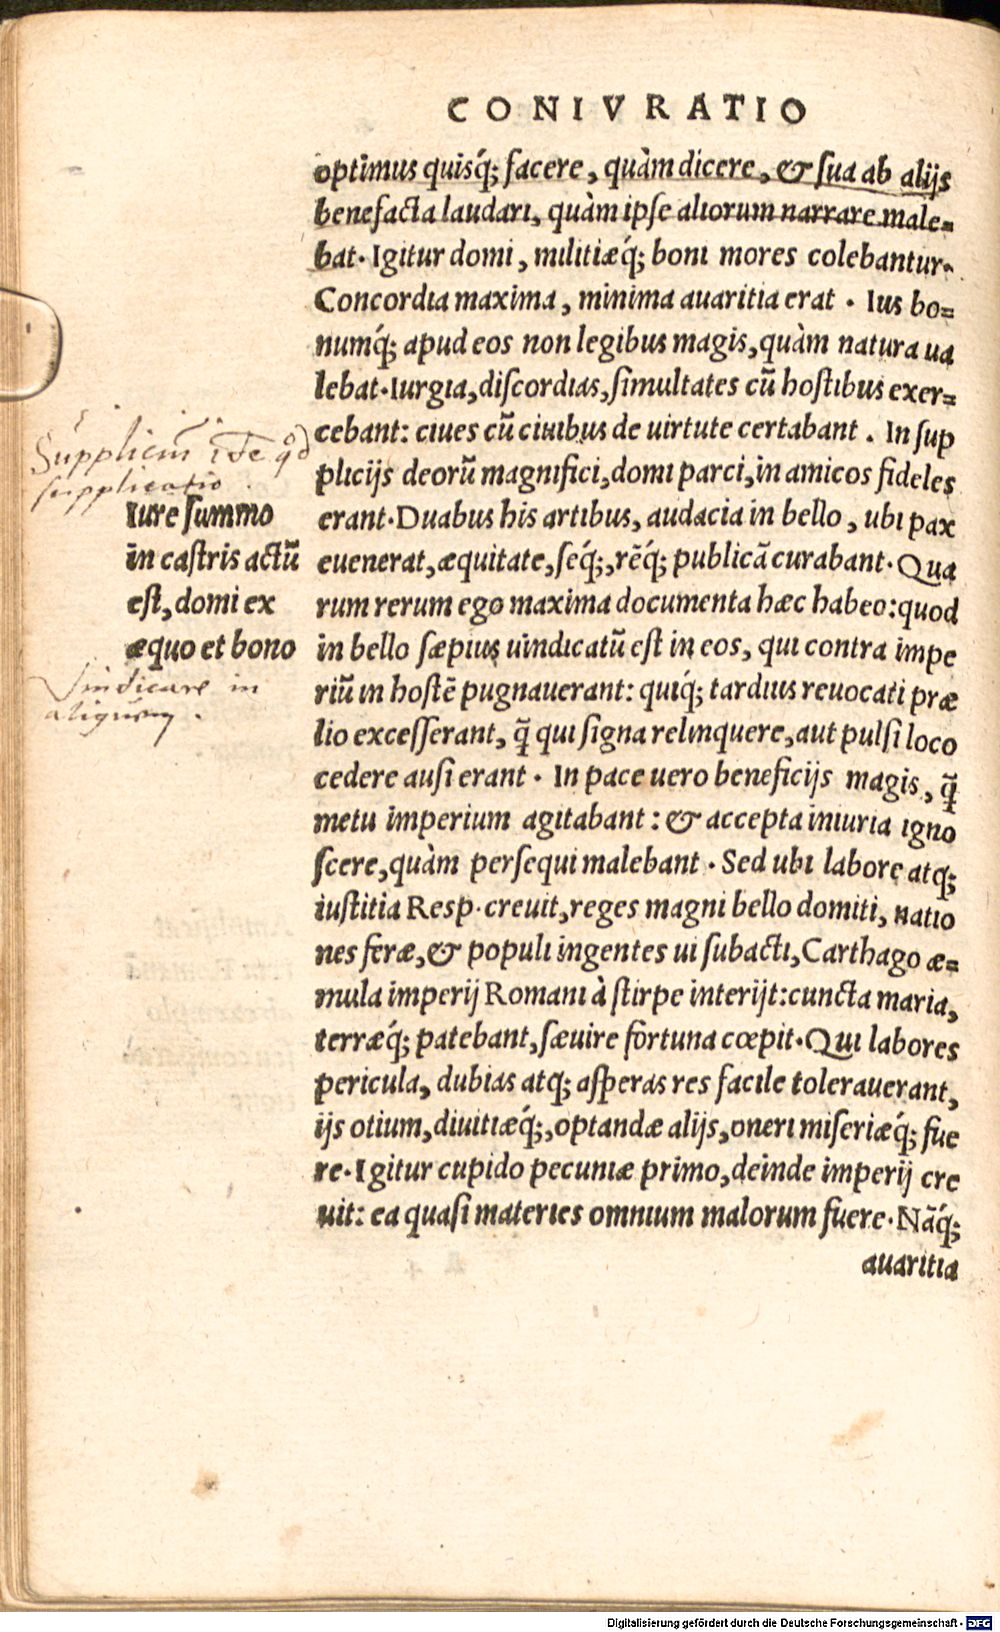 CONIVRATIO
optimus quisq́; facere, quàm dicere, & sua ab alijs
benefacta laudari, quàm ipse aliorum narrare male=
bat. Igitur domi, militiæq́; boni mores colebantur.
Concordia maxima, minima auaritia erat. Ius bo=
numq́; apud eos non legibus magis, quàm natura ua
lebat. Iurgia, discordias, simultates cũ hostibus exer=
cebant: ciues cũ ciuibus de uirtute certabant. In sup
plicijs deorũ magnifici, domi parci, in amicos fideles
erant. Duabus his artibus, audacia in bello, ubi pax
euenerat, æquitate, seq́;, rẽq́; publicã curabant. Qua
rum rerum ego maxima documenta hæc habeo: quod
in bello sæpius uindicatũ est in eos, qui contra impe
riũ in hostẽ pugnauerant: quiq́; tardius reuocati præ
lio excesserant, q̃ qui signa relinquere, aut pulsi loco
cedere ausi erant. In pace uero beneficijs magis, q̃
metu imperium agitabant: & accepta iniuria igno
scere, quàm persequi malebant. Sed ubi labore atq;
iustitia Resp. creuit, reges magni bello domiti, natio
nes feræ, & populi ingentes ui subacti, Carthago æ=
mula imperij Romani à stirpe interijt: cuncta maria,
terræq́; patebant, sæuire fortuna cœpit. Qui labores
pericula, dubias atq; asperas res facile tolerauerant,
ijs otium, diuitiæq́;, optandæ alijs, oneri miseriæq́; fue
re. Igitur cupido pecuniæ primo, deinde imperij cre
uit: ea quasi materies omnium malorum fuere. Nãq́;
auaritia
Suppliciũ idẽ qd
supplicatio.
Iure summo
in castris actũ
est, domi ex
æquo et bono
Vindicare in
aliquem.
Digitalisierung gefördert durch die Deutsche Forschungsgemeinschaft - DFG